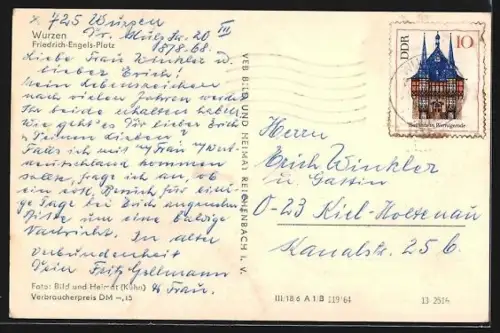 x 725 Wurzen
Str. 20 III
18/8-68.
Wurzen
Friedrich-Engels-Platz
Liebe Frau Winkler u.
lieber Erich!
Mein Lebenszeichen
nach vielen Jahren werdet
Ihr beide erhalten haben
Wie geht es Dir lieber Erich
u. Deinen Lieben?
Falls ich mit Frau Westdeutschland kommen
sollte, frage ich an, ob
ein Besuch für einige
Tage bei Euch angenehm
Bitte um eine baldige
Nachricht. In alter
Verbundenheit
Dein Fritz Gellmann
u. Frau.
Foto: Bild und Heimat (Kühn)
Verbraucherpreis DM -,15
VEB BILD UND HEIMAT REICHENBACH I. V.
DDR
10
Rathaus in Wernigerode
Herrn
Erich Winkler
u. Gattin
0-23 Kiel-Holtenau
Kanalstr. 25 b.
III 18 6 A 1 B 119/64
13 2514